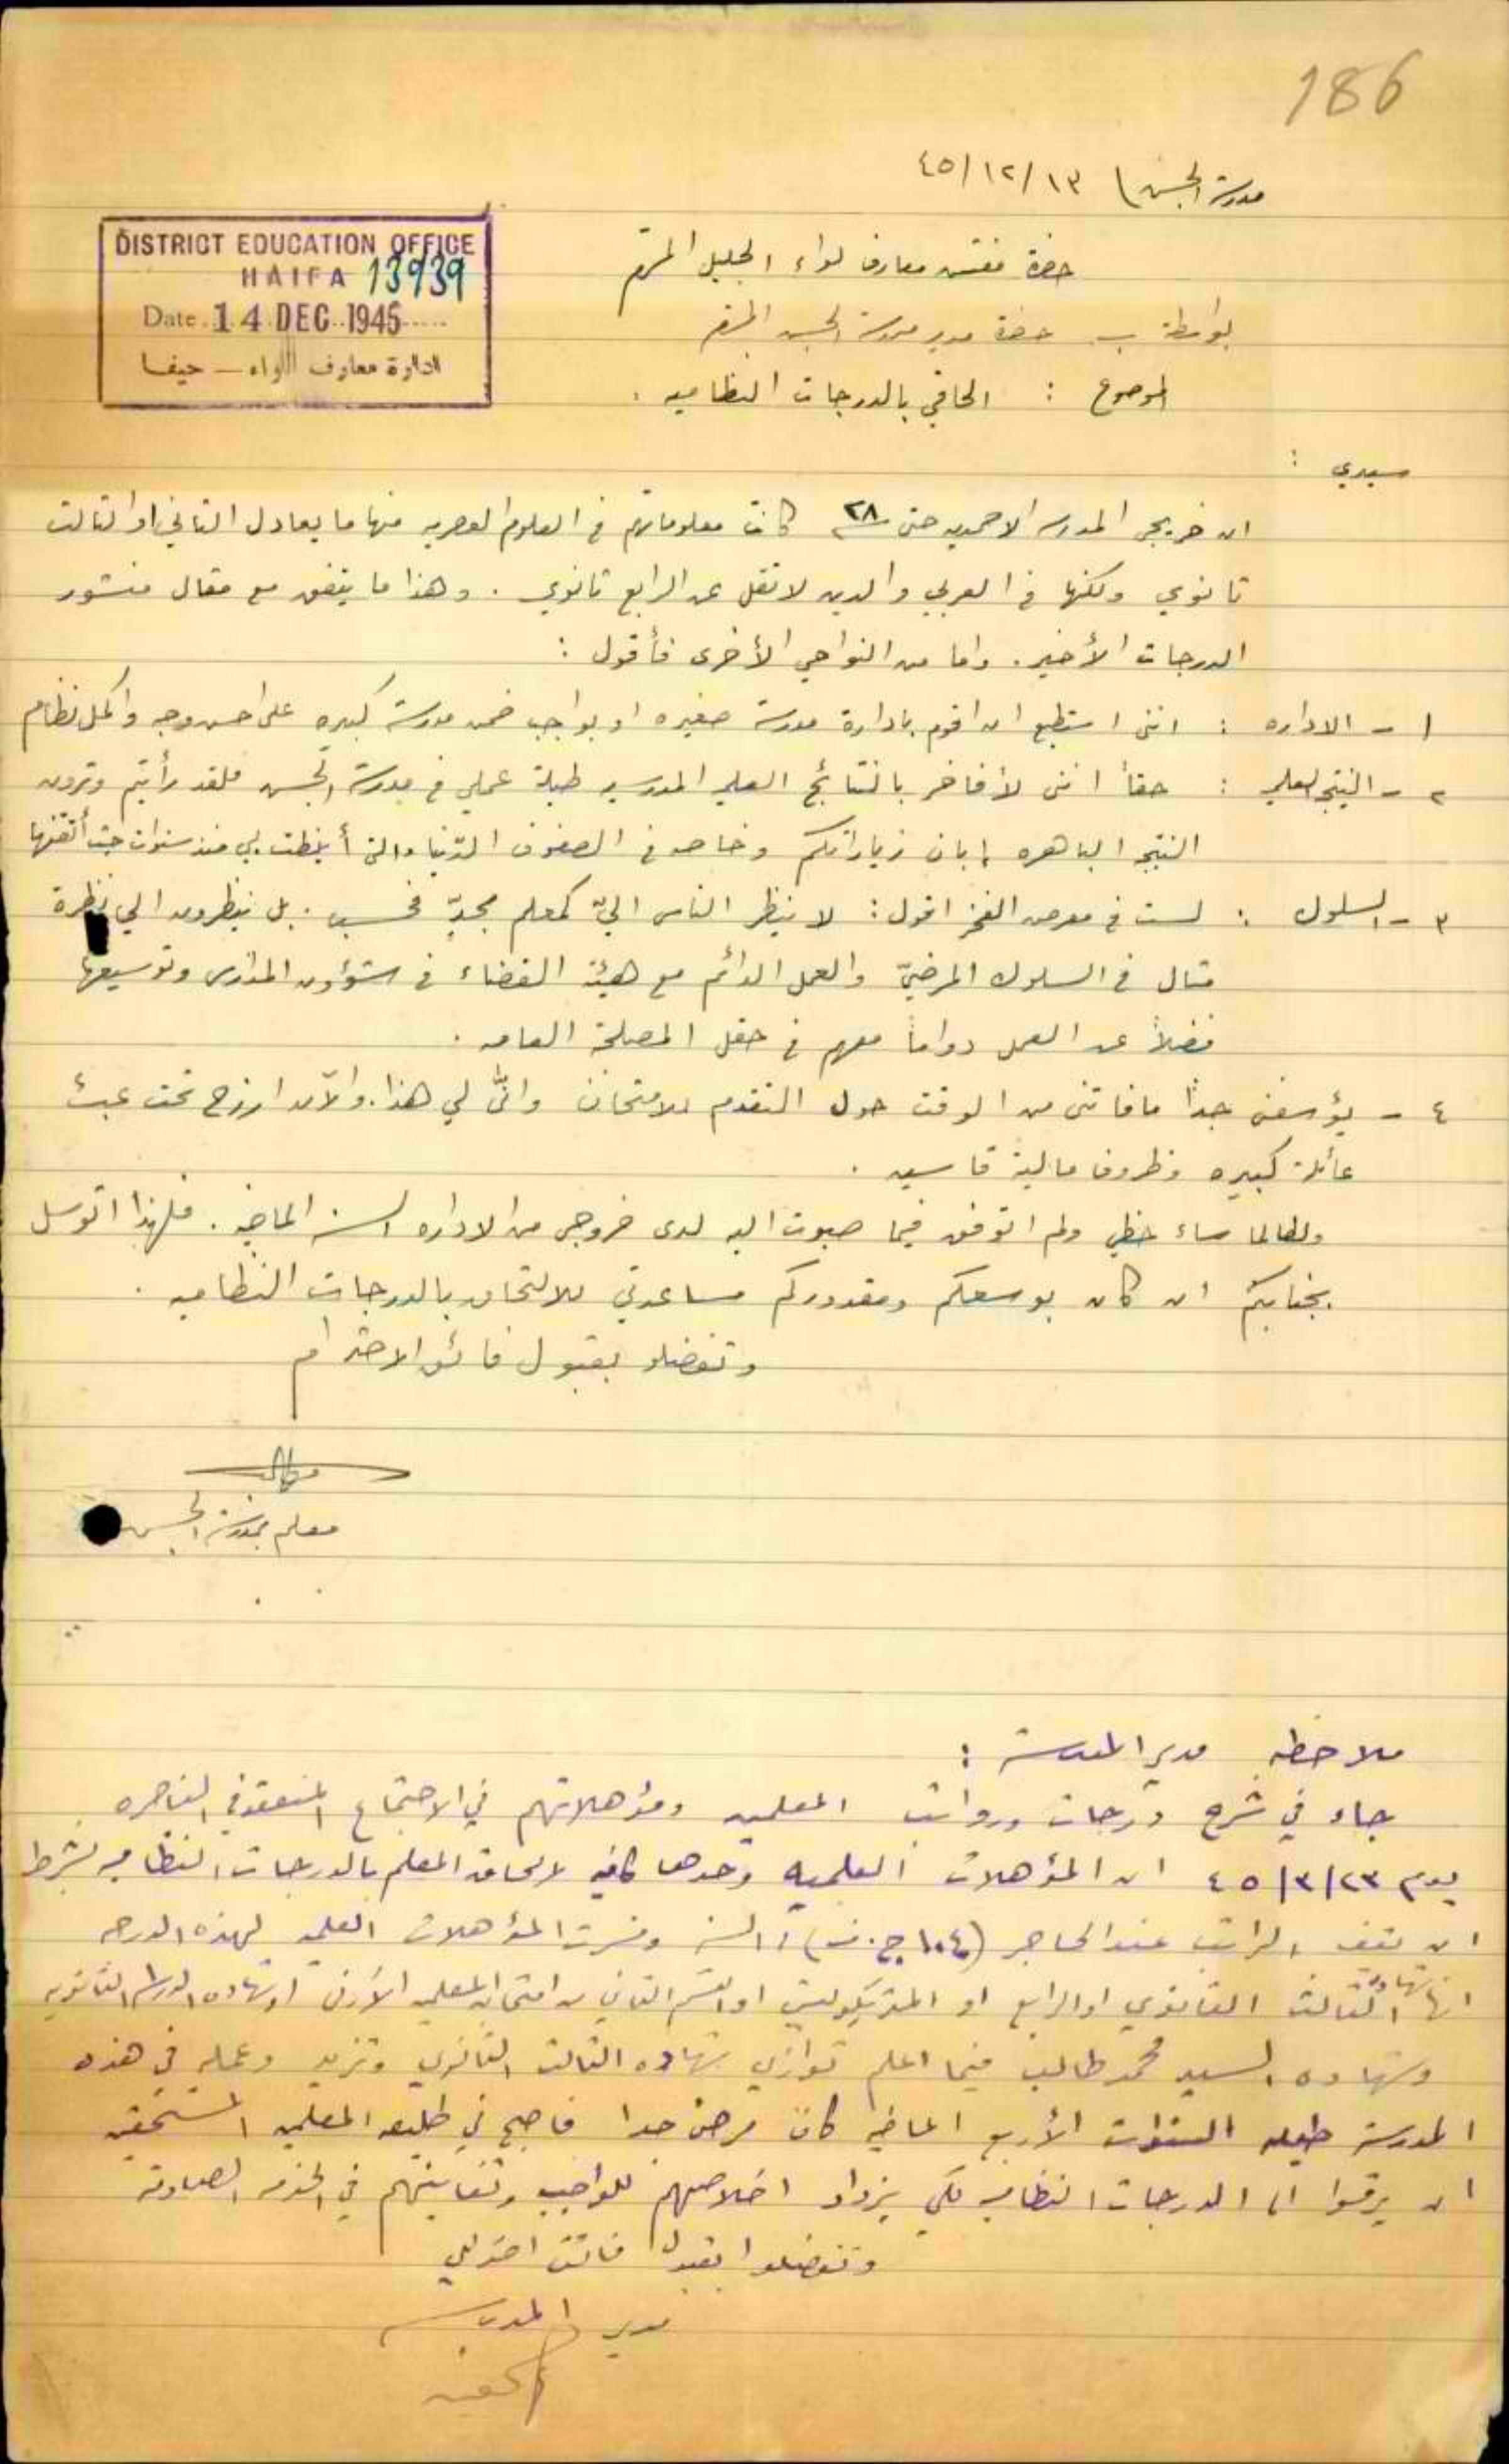 186
مدرسة الجش ١٣/١٢/٤٥
DISTRICT EDUCATION OFFICE
HAIFA 13939
Date 14 DEC 1945
ادارة معارف اللواء — حيفا
حضرة مفتش معارف لواء الجليل المحترم
بواسطة حضرة مدير مدرسة الجش المحترم
الموضوع : الحاقي بالدرجات النظاميه .
سيدي :
ان خريجي المدرسه الاحمديه حتى سنة ٢٨ كانت معلوماتهم في العلوم العصريه منها ما يعادل الثاني او الثالث
ثانوي ولكنها في العربي والدين لا تقل عن الرابع ثانوي . وهذا ما يتفق مع مقال منشور
الدرجات الأخير . واما من النواحي الأخرى فأقول :
١ - الاداره : انني استطيع ان اقوم بادارة مدرسة صغيره او بواجب ضمن مدرسة كبيره على احسن وجه واكمل نظام
٢ - النتيجه العلميه : حقاً انني لأفاخر بالنتائج العلميه المدرسيه طيلة عملي في مدرسة الجش فلقد رأيتم وترون
النتيجه الباهره إبان زياراتكم وخاصه في الصفوف الدنيا والتي أنيطت بي منذ سنوات حيث أتقنها
٣ - السلوك : لست في معرض الفخر اقول : لا ينظر الناس اليّ كمعلم مجدّ فحسب . بل ينظرون الي نظرة
مثال في السلوك المرضيّ والعمل الدائم مع هيئة القضاء في شؤون المدارس وتوسيعها
فضلاً عن العمل دواماً معهم في حقل المصلحة العامه .
٤ - يؤسفني جداً ما فاتني من الوقت حول التقدم للامتحان وانّى لي هذا . والآن ارزح تحت عبئ
عائلة كبيره وظروف مالية قاسيه .
ولطالما ساء حظي ولم اتوفق فيما صبوت اليه لدى خروجي من الاداره السنه الماضيه . فلهذا اتوسل
بجنابكم ان كان بوسعكم ومقدوركم مساعدتي للالتحاق بالدرجات النظاميه .
وتفضلو بقبول فائق الاحترام
معلم بمدرسة الجش
ملاحظة مدير المدرسة :
جاء في شرح درجات ورواتب المعلمين ومؤهلاتهم في الاجتماع المنعقد في الناصره
يوم ٢٣/٣/٤٥ ان المؤهلات العلميه وحدها كافيه لالحاق المعلم بالدرجات النظاميه بشرط
ان يقف الراتب عند الحاجز (١٠٤ ج.ف) / السنه وفسرت المؤهلات العلميه لهذه الدرجه
انها شهادة الثالث الثانوي او الرابع او المتريكوليشن او القسم الثاني من امتحان المعلمين الأدنى او شهاده الدراسه الثانويه
وشهاده السيد محمد طالب فيما اعلم توازي شهاده الثالث الثانوي وتزيد وعمله في هذه
المدرسة طيله السنوات الأربع الماضيه كان مرضٍ جدا فاصبح في طليعه المعلمين المستحقين
ان يرقوا الى الدرجات النظاميه لكي يزداد اخلاصهم للواجب وتفانيهم في الخدمه الصادقه
وتفضلوا بقبول فائق احترامي
مدير المدرسه